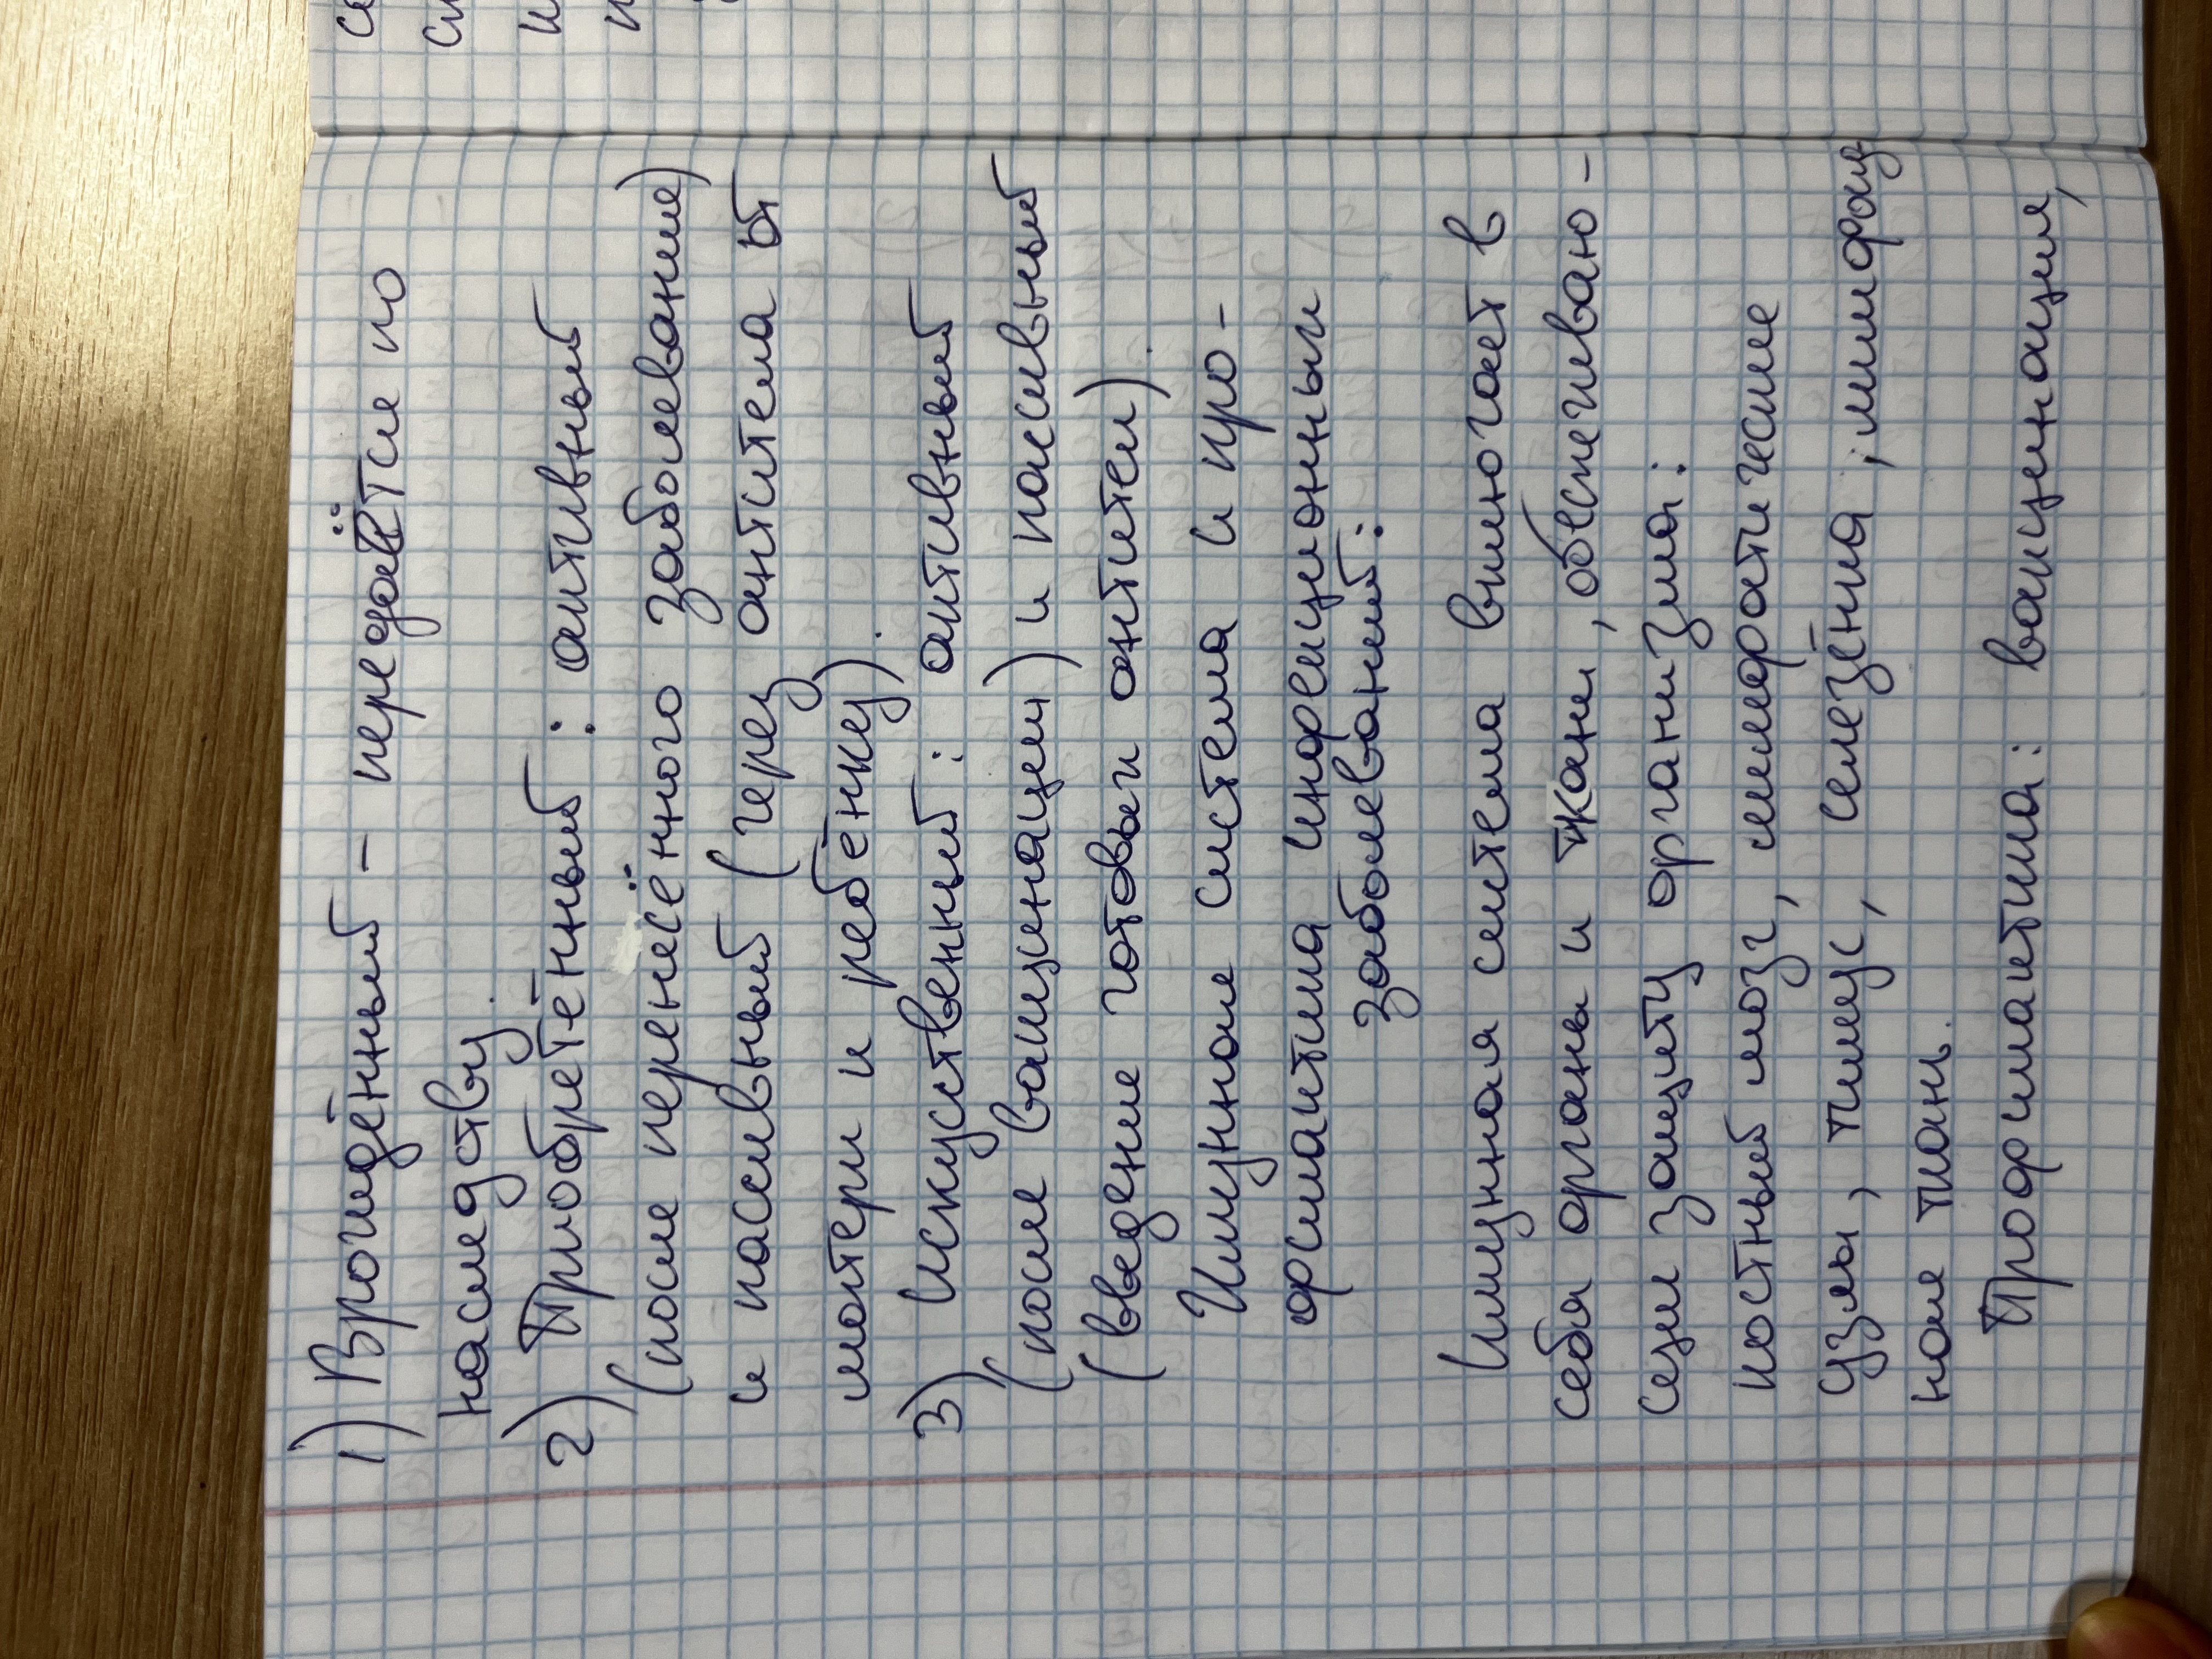 1) Врождённый – передаётся по
наследству.
2) Приобретённый: активный
(после перенесённого заболевание)
и пассивный (через антитела от
матери к ребёнку).
3) Искуственный: активный
(после вакцинации) и пасивный
(введение готовых антител).
Имунная система и про-
филактика инфекционных
заболеваний:
Имунная система включает в
себя органы и ткани, обеспечиваю-
щие защиту организма:
костный мозг, лимфатические
узлы, тимус, селезёнка, лимфоид
ная ткань.
Профилактика: вакцинация,